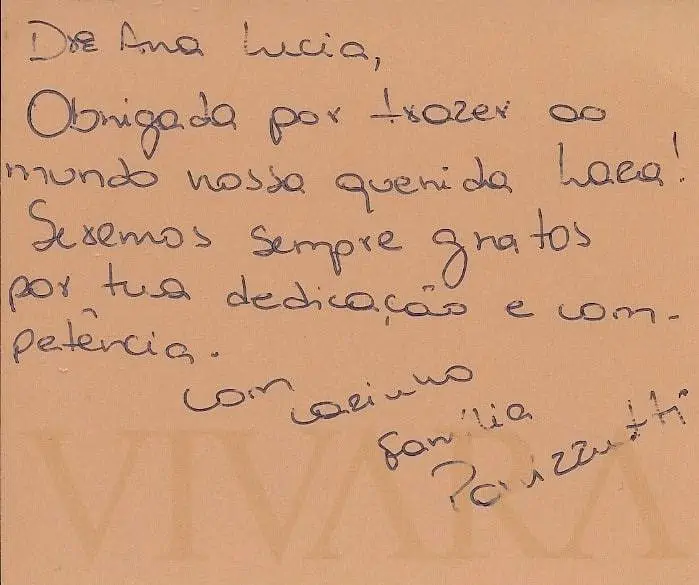 Dre Ana Lucia,
Obrigada por trazer ao
mundo nossa querida Lara!
Seremos sempre gratos
por tua dedicação e com-
petência.
com carinho
família
Parizzutti
VIVARA